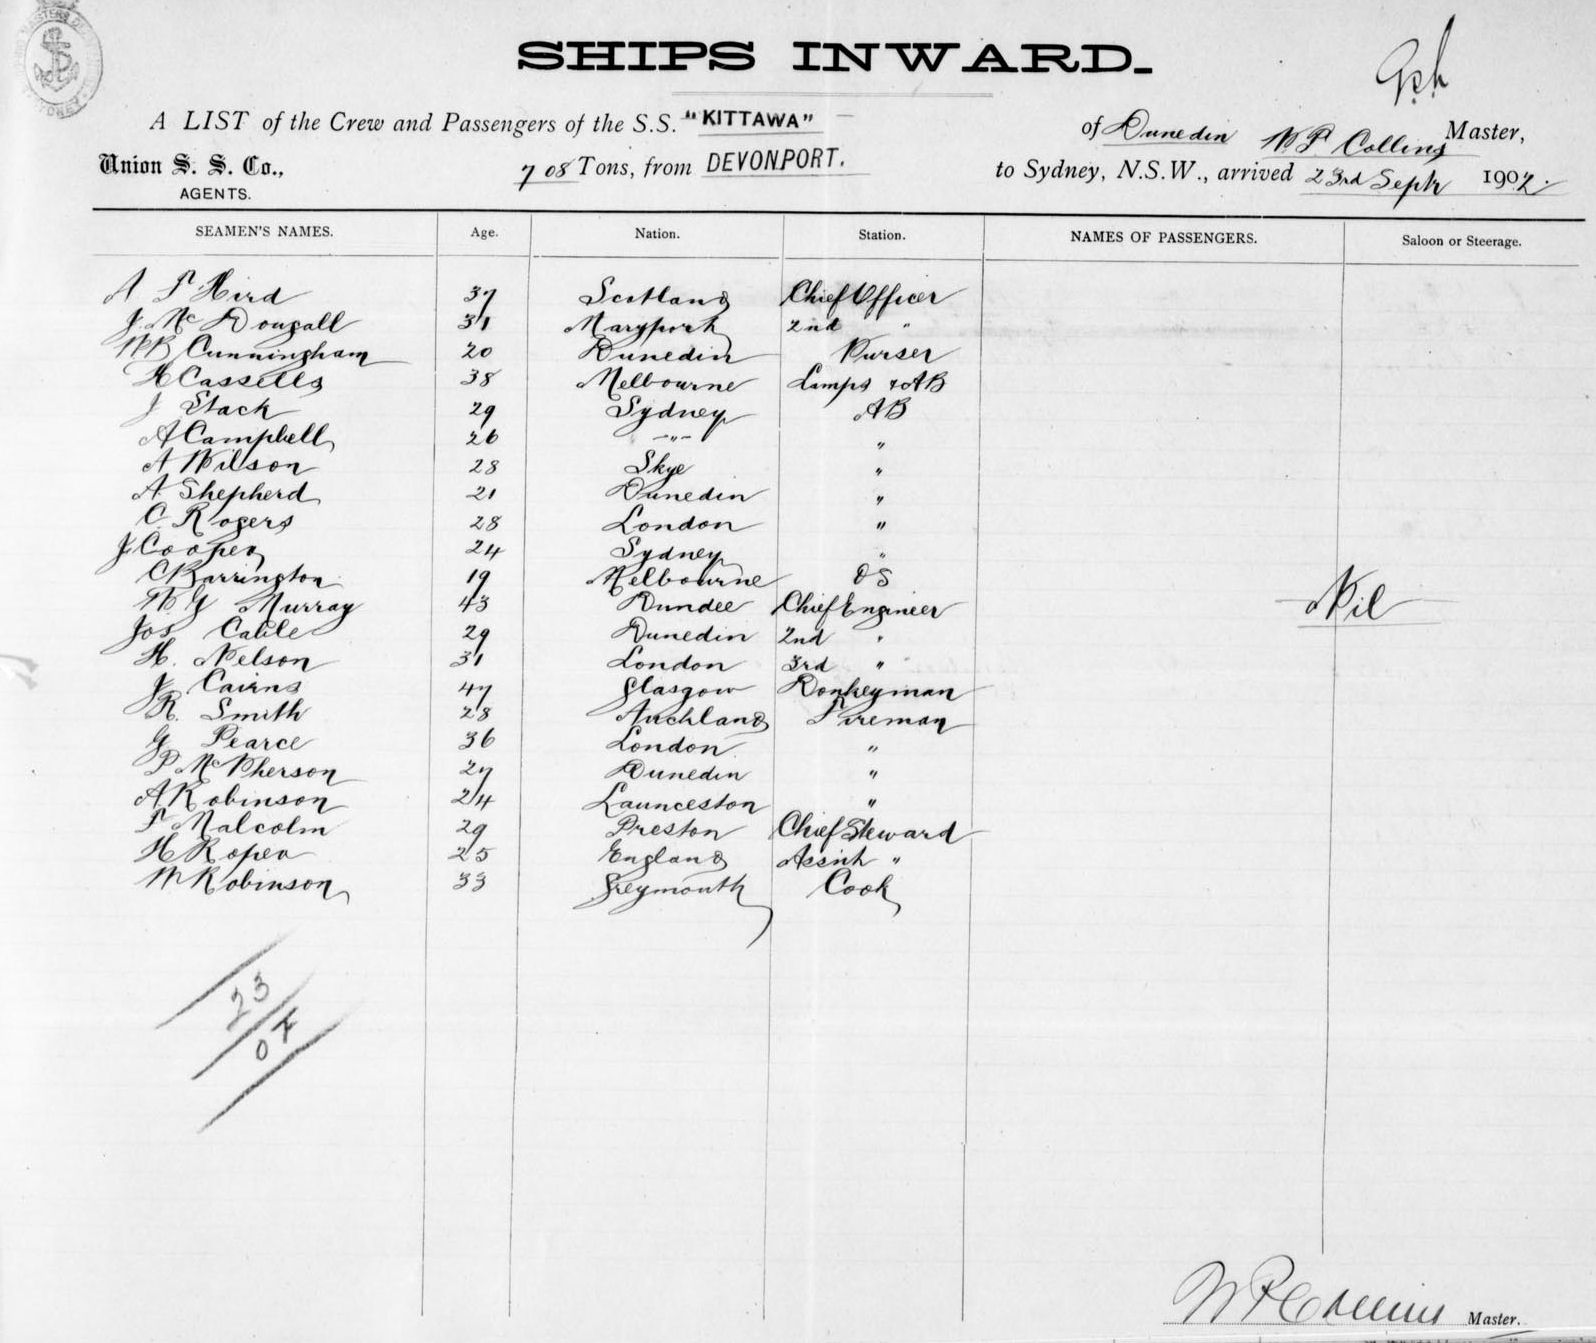 SHIPS INWARD.
A LIST of the Crew and Passengers of the S.S. "KITTAWA" of Dunedin W P Collins Master,
Union S. S. Co., AGENTS. 708 Tons, from DEVONPORT. to Sydney, N.S.W., arrived 23rd Sept 1902.
SEAMEN'S NAMES. Age. Nation. Station. NAMES OF PASSENGERS. Saloon or Steerage.
A F Hird 37 Scotland Chief Officer
J. Mc Dougall 31 Maryport 2nd "
WB Cunningham 20 Dunedin Purser
H Cassells 38 Melbourne Lamps & AB
J Stack 29 Sydney AB
A Campbell 26 -"- "
A Wilson 28 Skye "
A Shepherd 21 Dunedin "
C Rogers 28 London "
J Cooper 24 Sydney "
C Barrington 19 Melbourne OS
W G Murray 43 Dundee Chief Engineer Nil
Jos Cable 29 Dunedin 2nd "
H. Nelson 31 London 3rd "
J Cairns 47 Glasgow Donkeyman
R. Smith 28 Auckland Fireman
G Pearce 36 London "
P McPherson 27 Dunedin "
A Robinson 24 Launceston "
F Malcolm 29 Preston Chief Steward
H Roper 25 England Assist "
W Robinson 33 Greymouth Cook
23
W P Collins Master.